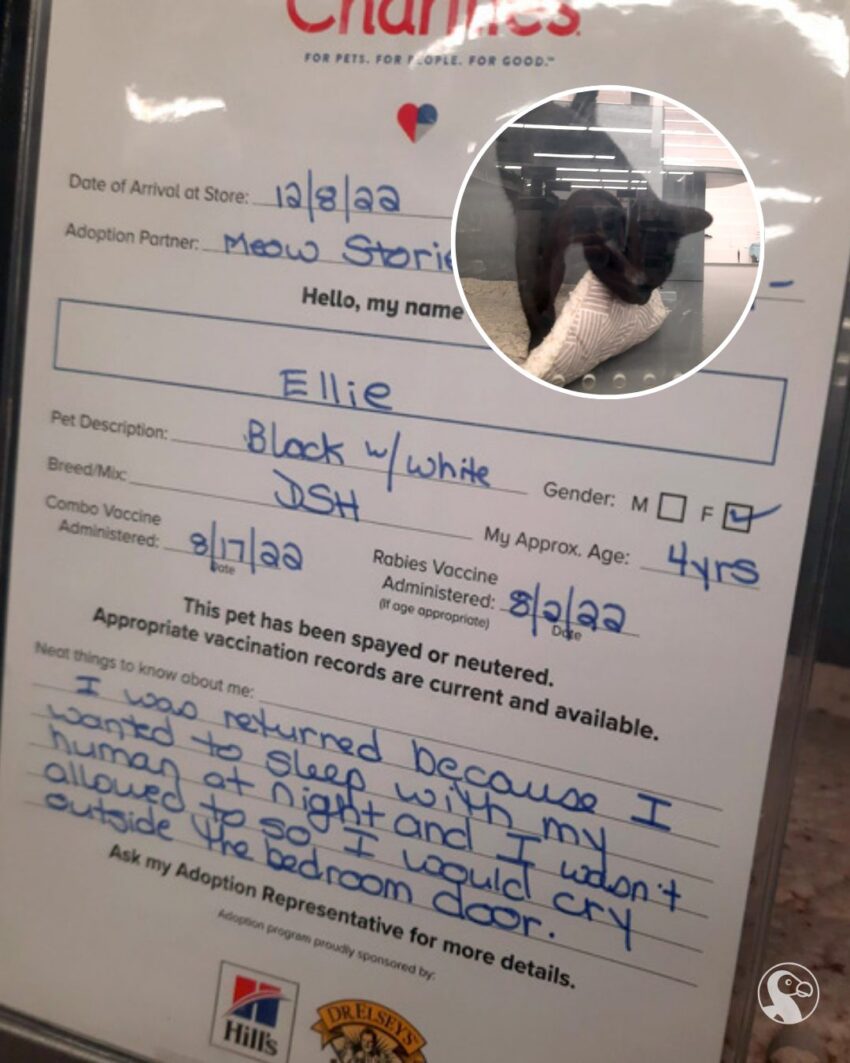 Charities
FOR PETS. FOR PEOPLE. FOR GOOD.™
Date of Arrival at Store: 12/8/22
Adoption Partner: Meow Storie
Hello, my name
Ellie
Pet Description: Black w/ white
Gender: M F ✓
Breed/Mix: DSH
My Approx. Age: 4yrs
Combo Vaccine
Administered: 8/17/22
Date
Rabies Vaccine
Administered: 8/2/22
(If age appropriate)
Date
This pet has been spayed or neutered.
Appropriate vaccination records are current and available.
Neat things to know about me:
I was returned because I
wanted to sleep with my
human at night and I wasn't
allowed to so I would cry
outside the bedroom door.
Ask my Adoption Representative for more details.
Adoption program proudly sponsored by:
Hill's
DR. ELSEY'S